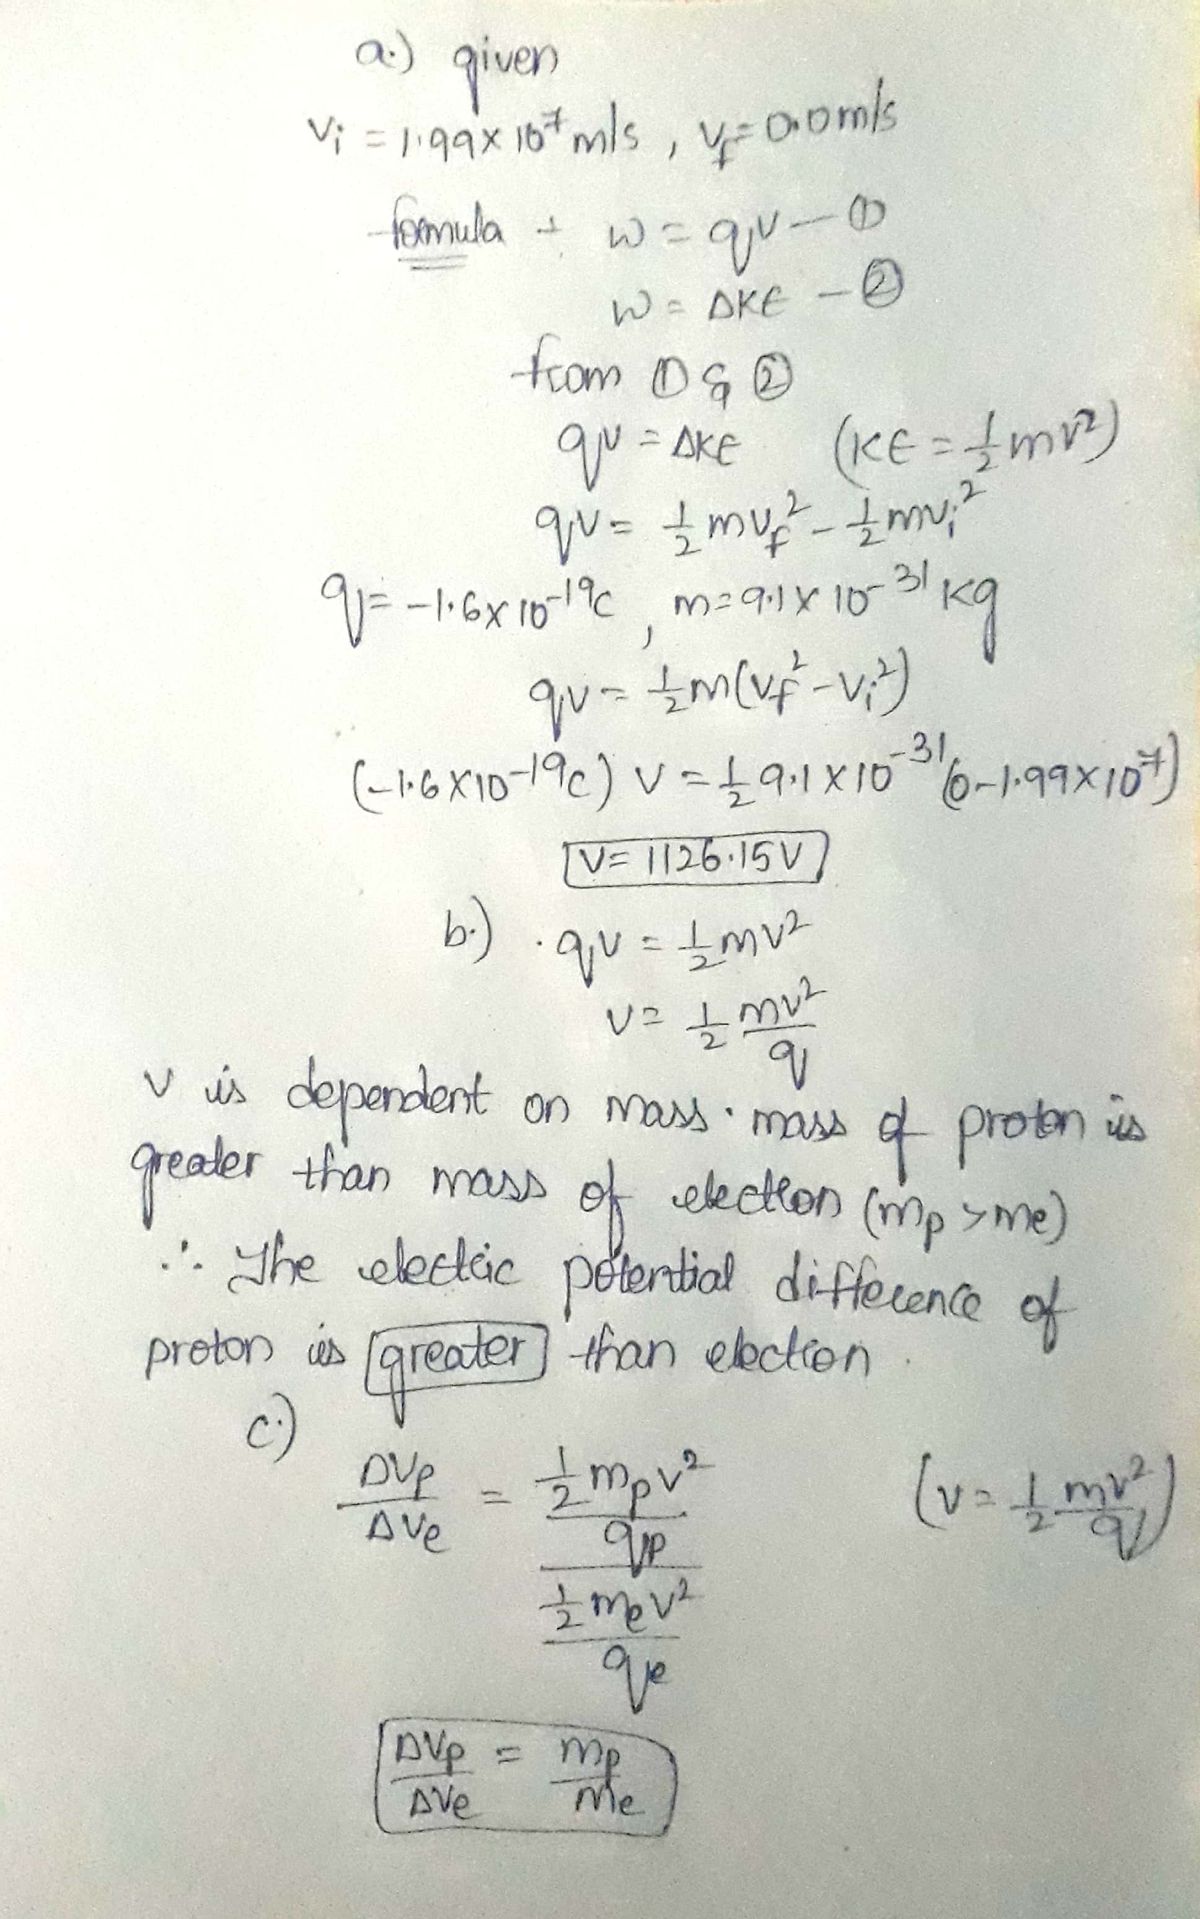 a.) given
Vi = 1.99 x 10⁷ m/s , Vf = 0.0 m/s
formula : W = qV — ①
W = ΔKE — ②
from ① & ②
qV = ΔKE (KE = 1/2 mv²)
qV = 1/2 mVf² - 1/2 mVi²
q = -1.6 x 10⁻¹⁹C , m = 9.1 x 10⁻³¹ Kg
qV = 1/2 m(Vf² - Vi²)
(-1.6 x 10⁻¹⁹C) V = 1/2 9.1 x 10⁻³¹ (0 - 1.99 x 10⁷)
V = 1126.15 V
b.) . qV = 1/2 mv²
V = 1/2 mv²/q
V is dependent on mass. mass of proton is
greater than mass of electron (mp > me)
∴ The electric potential difference of
proton is greater than electron.
c.)
ΔVp/ΔVe = (1/2 mpv²/qp)/(1/2 mev²/qe) (V = 1/2 mv²/q)
ΔVp/ΔVe = mp/me